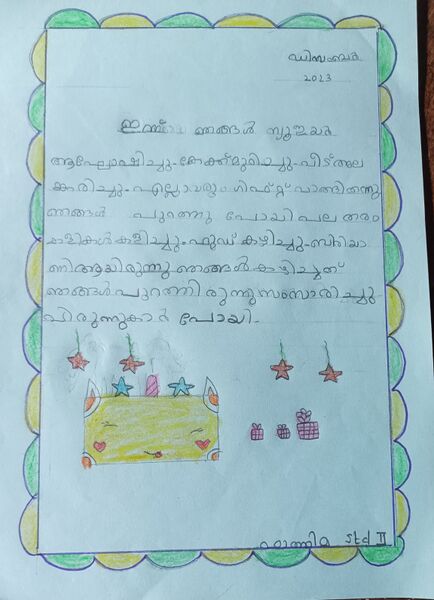 ഡിസംബർ
2023
ഇന്ന് ഞങ്ങൾ ന്യൂഇയർ
ആഘോഷിച്ചു. കേക്ക് മുറിച്ചു. വീട് അല
ങ്കരിച്ചു. എല്ലാവരും ഗിഫ്റ്റ് വാങ്ങിതന്നു
ഞങ്ങൾ പുറത്തു പോയി പല തരം
കളികൾ കളിച്ചു. ഫുഡ് കഴിച്ചു. ബിരിയാ
ണിആയിരുന്നു ഞങ്ങൾ കഴിച്ചത്
ഞങ്ങൾ പുറത്തിരുന്നു സംസാരിച്ചു.
വിരുന്നുകാർ പോയി.
std II